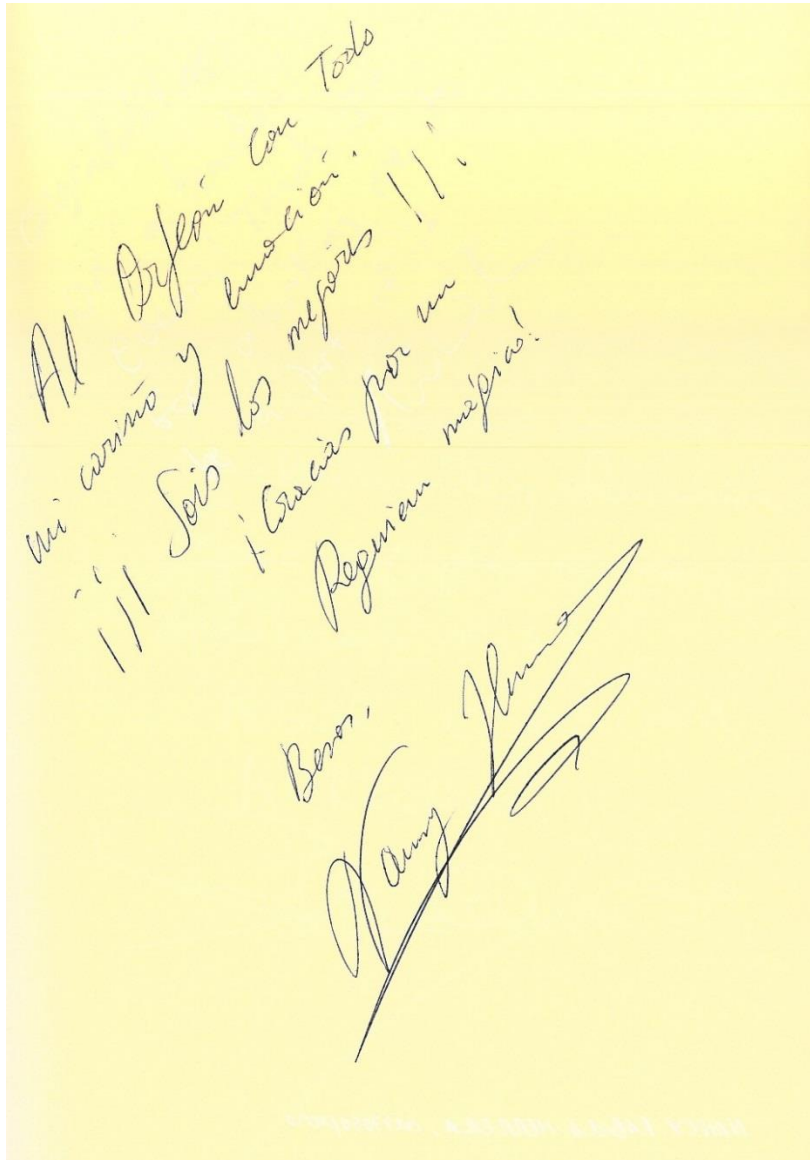 Al Orfeón con Todo
mi cariño y emoción.
¡¡¡ Sois los mejores !!!
¡Gracias por un
Requiem mágico!
Besos,
Nancy